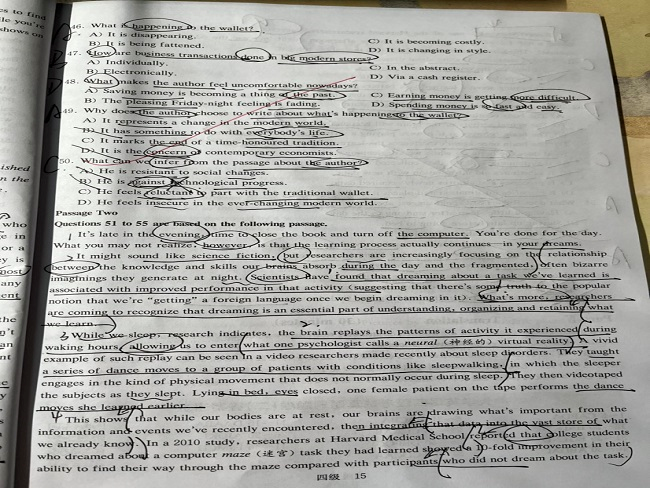 46. What is happening to the wallet?
A) It is disappearing.
B) It is being fattened.
C) It is becoming costly.
D) It is changing in style.
47. How are business transactions done in big modern stores?
A) Individually.
B) Electronically.
C) In the abstract.
D) Via a cash register.
48. What makes the author feel uncomfortable nowadays?
A) Saving money is becoming a thing of the past.
B) The pleasing Friday-night feeling is fading.
C) Earning money is getting more difficult.
D) Spending money is so fast and easy.
49. Why does the author choose to write about what's happening to the wallet?
A) It represents a change in the modern world.
B) It has something to do with everybody's life.
C) It marks the end of a time-honoured tradition.
D) It is the concern of contemporary economists.
50. What can we infer from the passage about the author?
A) He is resistant to social changes.
B) He is against technological progress.
C) He feels reluctant to part with the traditional wallet.
D) He feels insecure in the ever-changing modern world.
Passage Two
Questions 51 to 55 are based on the following passage.
It's late in the evening: time to close the book and turn off the computer. You're done for the day.
What you may not realize, however, is that the learning process actually continues in your dreams.
It might sound like science fiction, but researchers are increasingly focusing on the relationship
between the knowledge and skills our brains absorb during the day and the fragmented, often bizarre
imaginings they generate at night. Scientists have found that dreaming about a task we've learned is
associated with improved performance in that activity (suggesting that there's some truth to the popular
notion that we're "getting" a foreign language once we begin dreaming in it). What's more, researchers
are coming to recognize that dreaming is an essential part of understanding, organizing and retaining what
we learn.
While we sleep, research indicates, the brain replays the patterns of activity it experienced during
waking hours, allowing us to enter what one psychologist calls a neural (神经的) virtual reality. A vivid
example of such replay can be seen in a video researchers made recently about sleep disorders. They taught
a series of dance moves to a group of patients with conditions like sleepwalking, in which the sleeper
engages in the kind of physical movement that does not normally occur during sleep. They then videotaped
the subjects as they slept. Lying in bed, eyes closed, one female patient on the tape performs the dance
moves she learned earlier.
This shows that while our bodies are at rest, our brains are drawing what's important from the
information and events we've recently encountered, then integrating that data into the vast store of what
we already know. In a 2010 study, researchers at Harvard Medical School reported that college students
who dreamed about a computer maze (迷宫) task they had learned showed a 10-fold improvement in their
ability to find their way through the maze compared with participants who did not dream about the task.
四级 15